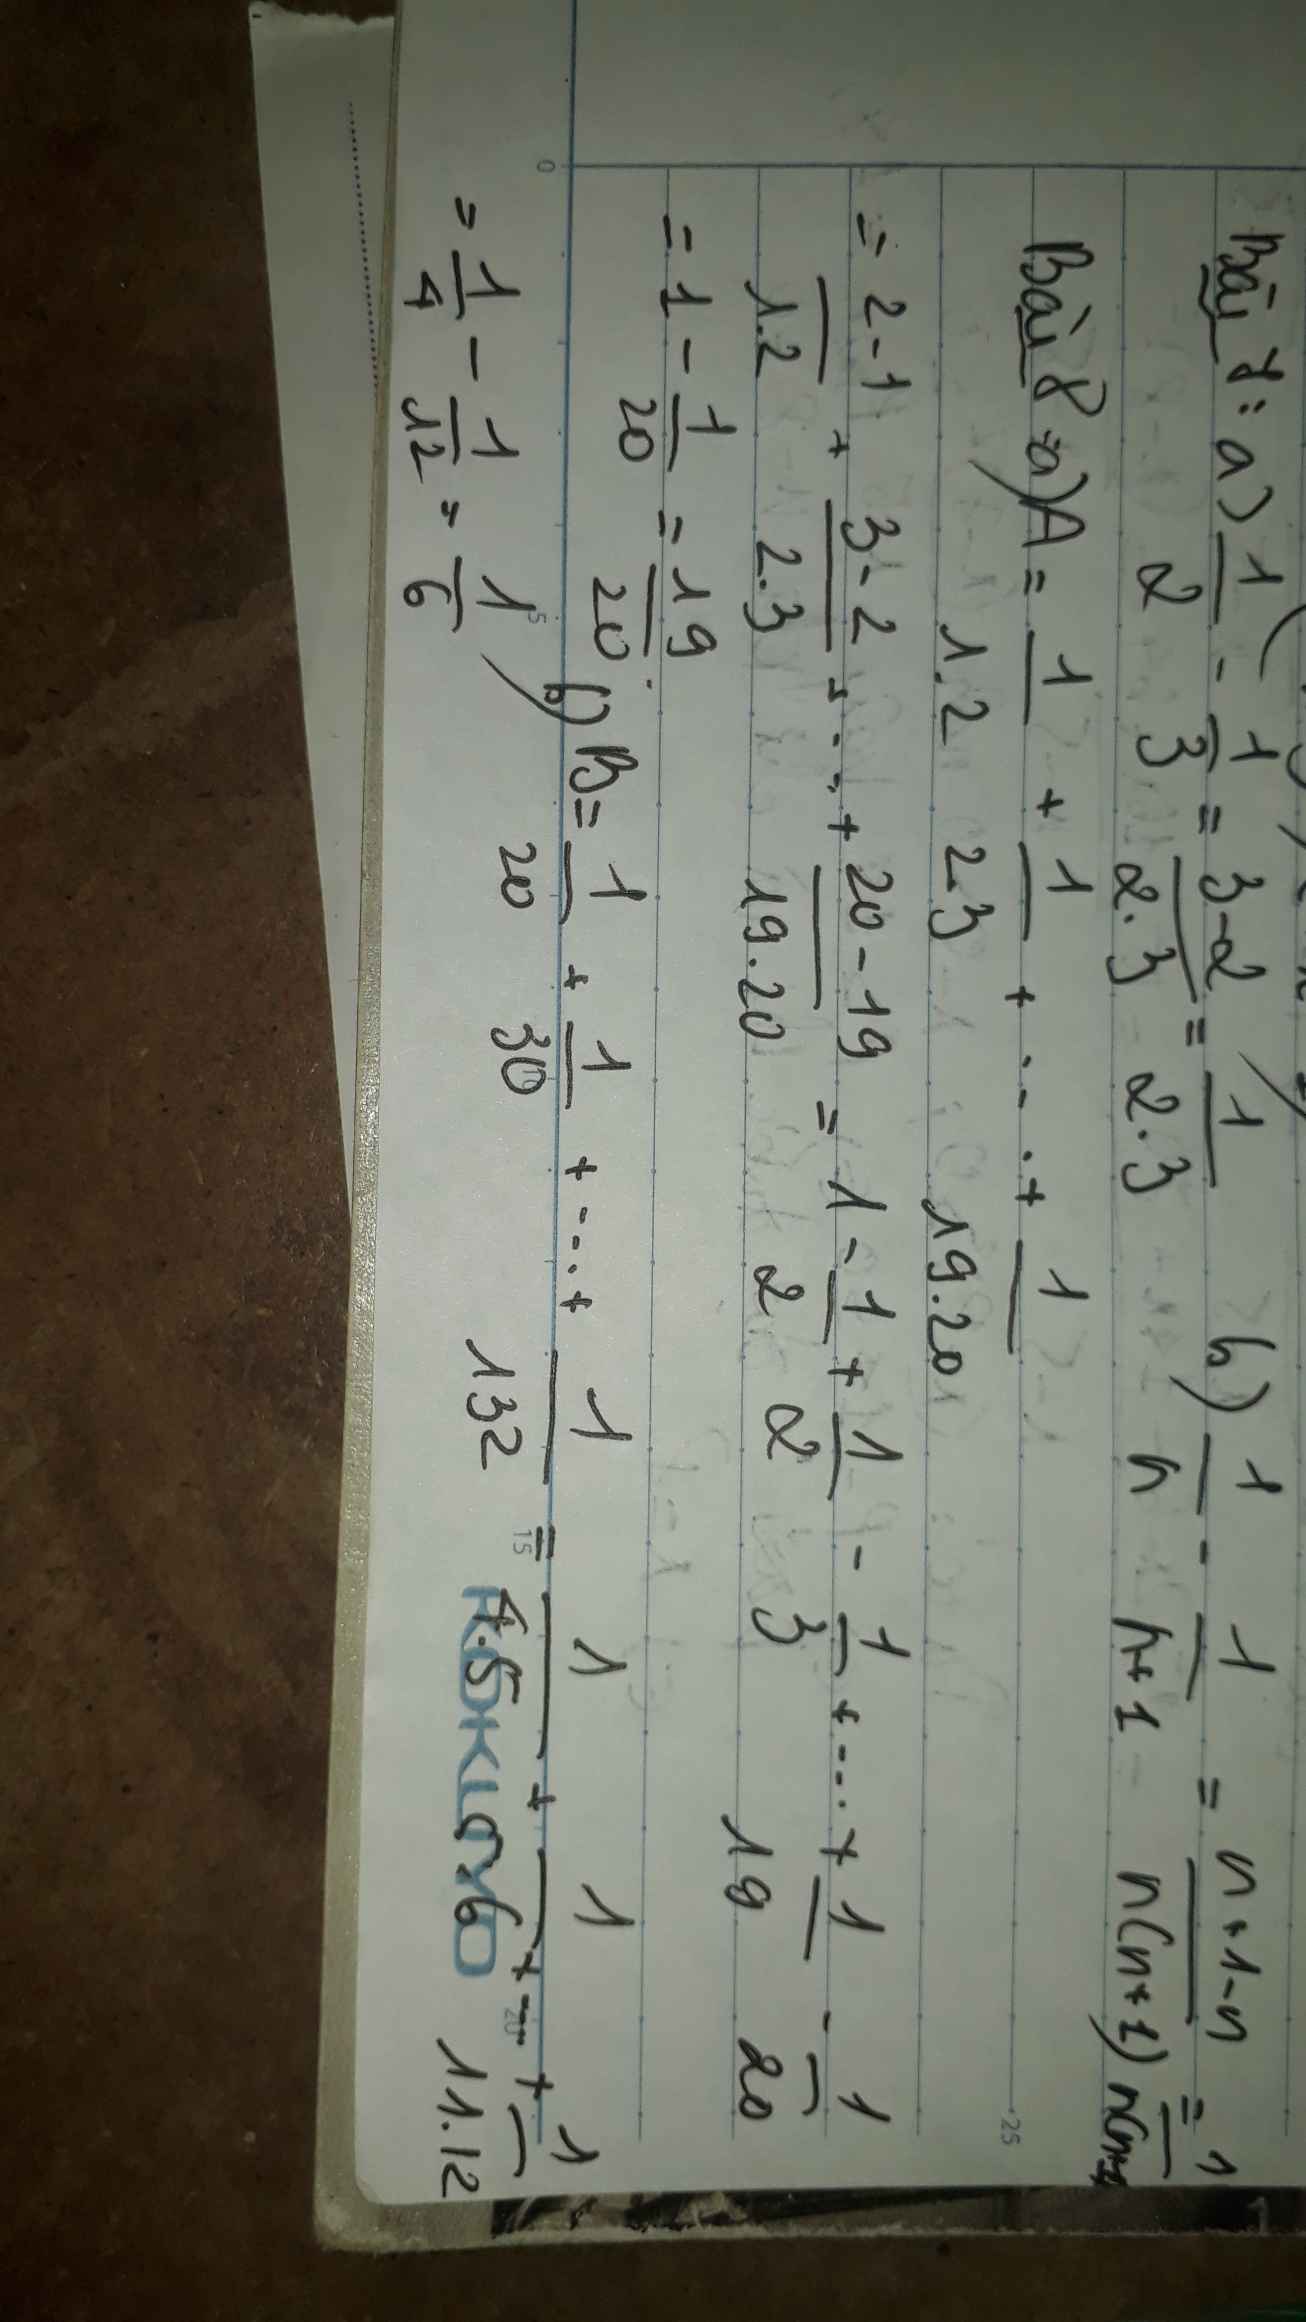 Bài 7: a) 1/2 - 1/3 = 3-2/2.3 = 1/2.3 b) 1/n - 1/n+1 = n+1-n/n(n+1) = 1/n(n+1
Bài 8 a) A = 1/1.2 + 1/2.3 + ... + 1/19.20
= 2-1/1.2 + 3-2/2.3 + ... + 20-19/19.20 = 1 - 1/2 + 1/2 - 1/3 + ... + 1/19 - 1/20
= 1 - 1/20 = 19/20.
b) B = 1/20 + 1/30 + ... + 1/132 = 1/4.5 + 1/5.6 + ... + 1/11.12
= 1/4 - 1/12 = 1/6
KOKUYO
0
5
15
20
25